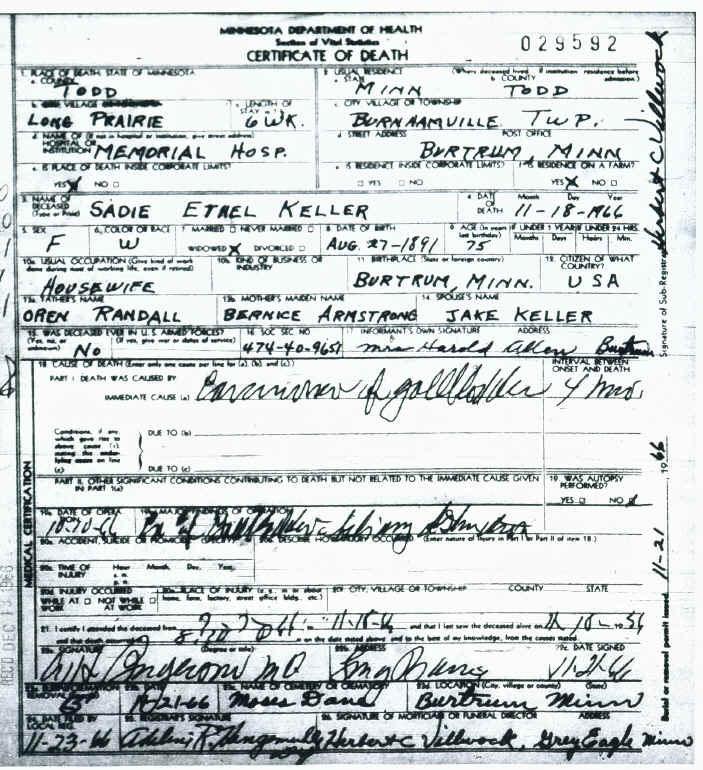 MINNESOTA DEPARTMENT OF HEALTH
Section of Vital Statistics
CERTIFICATE OF DEATH
029592
1. PLACE OF DEATH, STATE OF MINNESOTA
a. COUNTY TODD
2. USUAL RESIDENCE (Where deceased lived. If institution residence before admission.)
a. STATE MINN b. COUNTY TODD
b. VILLAGE LONG PRAIRIE
c. LENGTH OF STAY 6 WK.
c. CITY VILLAGE OR TOWNSHIP BURNHAMVILLE TWP.
d. NAME OF HOSPITAL OR INSTITUTION (If not in hospital or institution, give street address) MEMORIAL HOSP.
d. STREET ADDRESS POST OFFICE BURTRUM MINN
e. IS PLACE OF DEATH INSIDE CORPORATE LIMITS?
YES X NO
e. IS RESIDENCE INSIDE CORPORATE LIMITS? f. IS RESIDENCE ON A FARM?
YES NO YES X NO
3. NAME OF DECEASED (Type or Print) SADIE ETHEL KELLER
4. DATE OF DEATH Month Day Year 11-18-1966
5. SEX F
6. COLOR OR RACE W
7. MARRIED NEVER MARRIED WIDOWED X DIVORCED
8. DATE OF BIRTH AUG. 27-1891
9. AGE (In years last birthday) 75 IF UNDER 1 YEAR Months Days IF UNDER 24 HRS. Hours Min.
10a. USUAL OCCUPATION (Give kind of work done during most of working life, even if retired) HOUSEWIFE
10b. KIND OF BUSINESS OR INDUSTRY
11. BIRTHPLACE (State or foreign country) BURTRUM, MINN.
12. CITIZEN OF WHAT COUNTRY? USA
13a. FATHER'S NAME OREN RANDALL
13b. MOTHER'S MAIDEN NAME BERNICE ARMSTRONG
14. SPOUSE'S NAME JAKE KELLER
15. WAS DECEASED EVER IN U.S. ARMED FORCES? (Yes, no, or unknown) (If yes, give war or dates of service) No
16. SOC SEC NO 474-40-9651
17. INFORMANT'S OWN SIGNATURE ADDRESS Mrs Harold Allen Burtrum
18. CAUSE OF DEATH (Enter only one cause per line for (a), (b), and (c))
INTERVAL BETWEEN ONSET AND DEATH
PART I. DEATH WAS CAUSED BY
IMMEDIATE CAUSE (a) Carcinoma of gallbladder 4 mo.
Conditions, if any which gave rise to above cause (a), stating the underlying cause on line (c)
DUE TO (b)
DUE TO (c)
PART II. OTHER SIGNIFICANT CONDITIONS CONTRIBUTING TO DEATH BUT NOT RELATED TO THE IMMEDIATE CAUSE GIVEN IN PART I(a)
19. WAS AUTOPSY PERFORMED?
YES NO X
MEDICAL CERTIFICATION
19a. DATE OF OPERA
MAJOR FINDINGS OF OPERATION
20a. ACCIDENT, SUICIDE OR HOMICIDE (SPECIFY) 20b. DESCRIBE HOW INJURY OCCURRED (Enter nature of injury in Part I or Part II of item 18.)
20c. TIME OF INJURY Hour a. m. p. m. Month, Day, Year,
20d. INJURY OCCURRED WHILE AT WORK NOT WHILE AT WORK
20e. PLACE OF INJURY (e. g., in or about home, farm, factory, street office bldg., etc.)
20f. CITY, VILLAGE OR TOWNSHIP COUNTY STATE
21. I certify I attended the deceased from to 11-18-66 and that I last saw the deceased alive on
and that death occurred on the date stated above and to the best of my knowledge, from the causes stated.
22a. SIGNATURE (Degree or title) MD
22b. ADDRESS Long Prairie
22c. DATE SIGNED 11-21-66
REMOVAL
DATE 11-21-66
23c. NAME OF CEMETERY OR CREMATORY Moses Dane
23d. LOCATION (City, village or county) (State) Burtrum Minn
24. DATE FILED BY LOCAL REG. 11-23-66
25. REGISTRAR'S SIGNATURE
26. SIGNATURE OF MORTICIAN OR FUNERAL DIRECTOR ADDRESS Herbert C Villwock, Grey Eagle Minn
Signature of Sub-Registrar Herbert C Villwock
Burial or removal permit issued 11-21 1966
REC'D DEC 13 1966